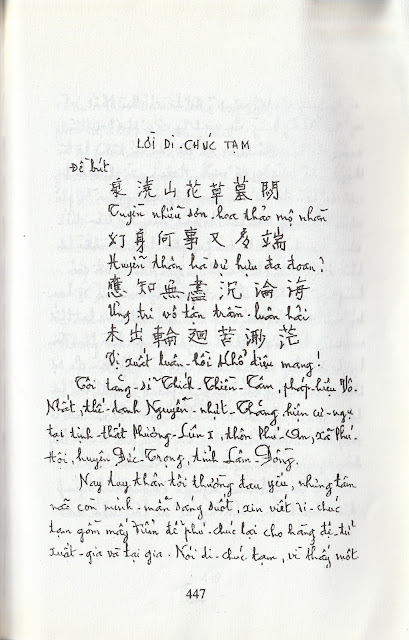 LỜI DI-CHÚC TẠM
Đề bút
繞山花草墓間
Tuyền nhiễu sơn-hoa thảo mộ nhàn
幻身何事又多端
Huyễn thân hà sự hựu đa đoan?
應知無盡沉淪海
Ưng tri vô tận trầm-luân hải
未出輪迴苦渺茫
Vị xuất luân-hồi khổ diệu mang!
Tôi tăng-sĩ Thích-Thiền-Tâm, pháp-hiệu Vô-
Nhất, thế-danh Nguyễn-nhựt-Thăng, hiện cư-ngụ
tại tịnh-thất Phương-Liên I, thôn Phú-An, xã Phú-
Hội, huyện Đức-Trọng, tỉnh Lâm-Đồng.
Nay tuy thân tôi thường đau yếu, nhưng tâm
não còn minh-mẫn sáng suốt, xin viết di-chúc
tạm gồm mấy điểm để phú-chúc lại cho hàng đệ-tử
xuất-gia và tại gia. Nói di-chúc tạm, vì thấy một
447